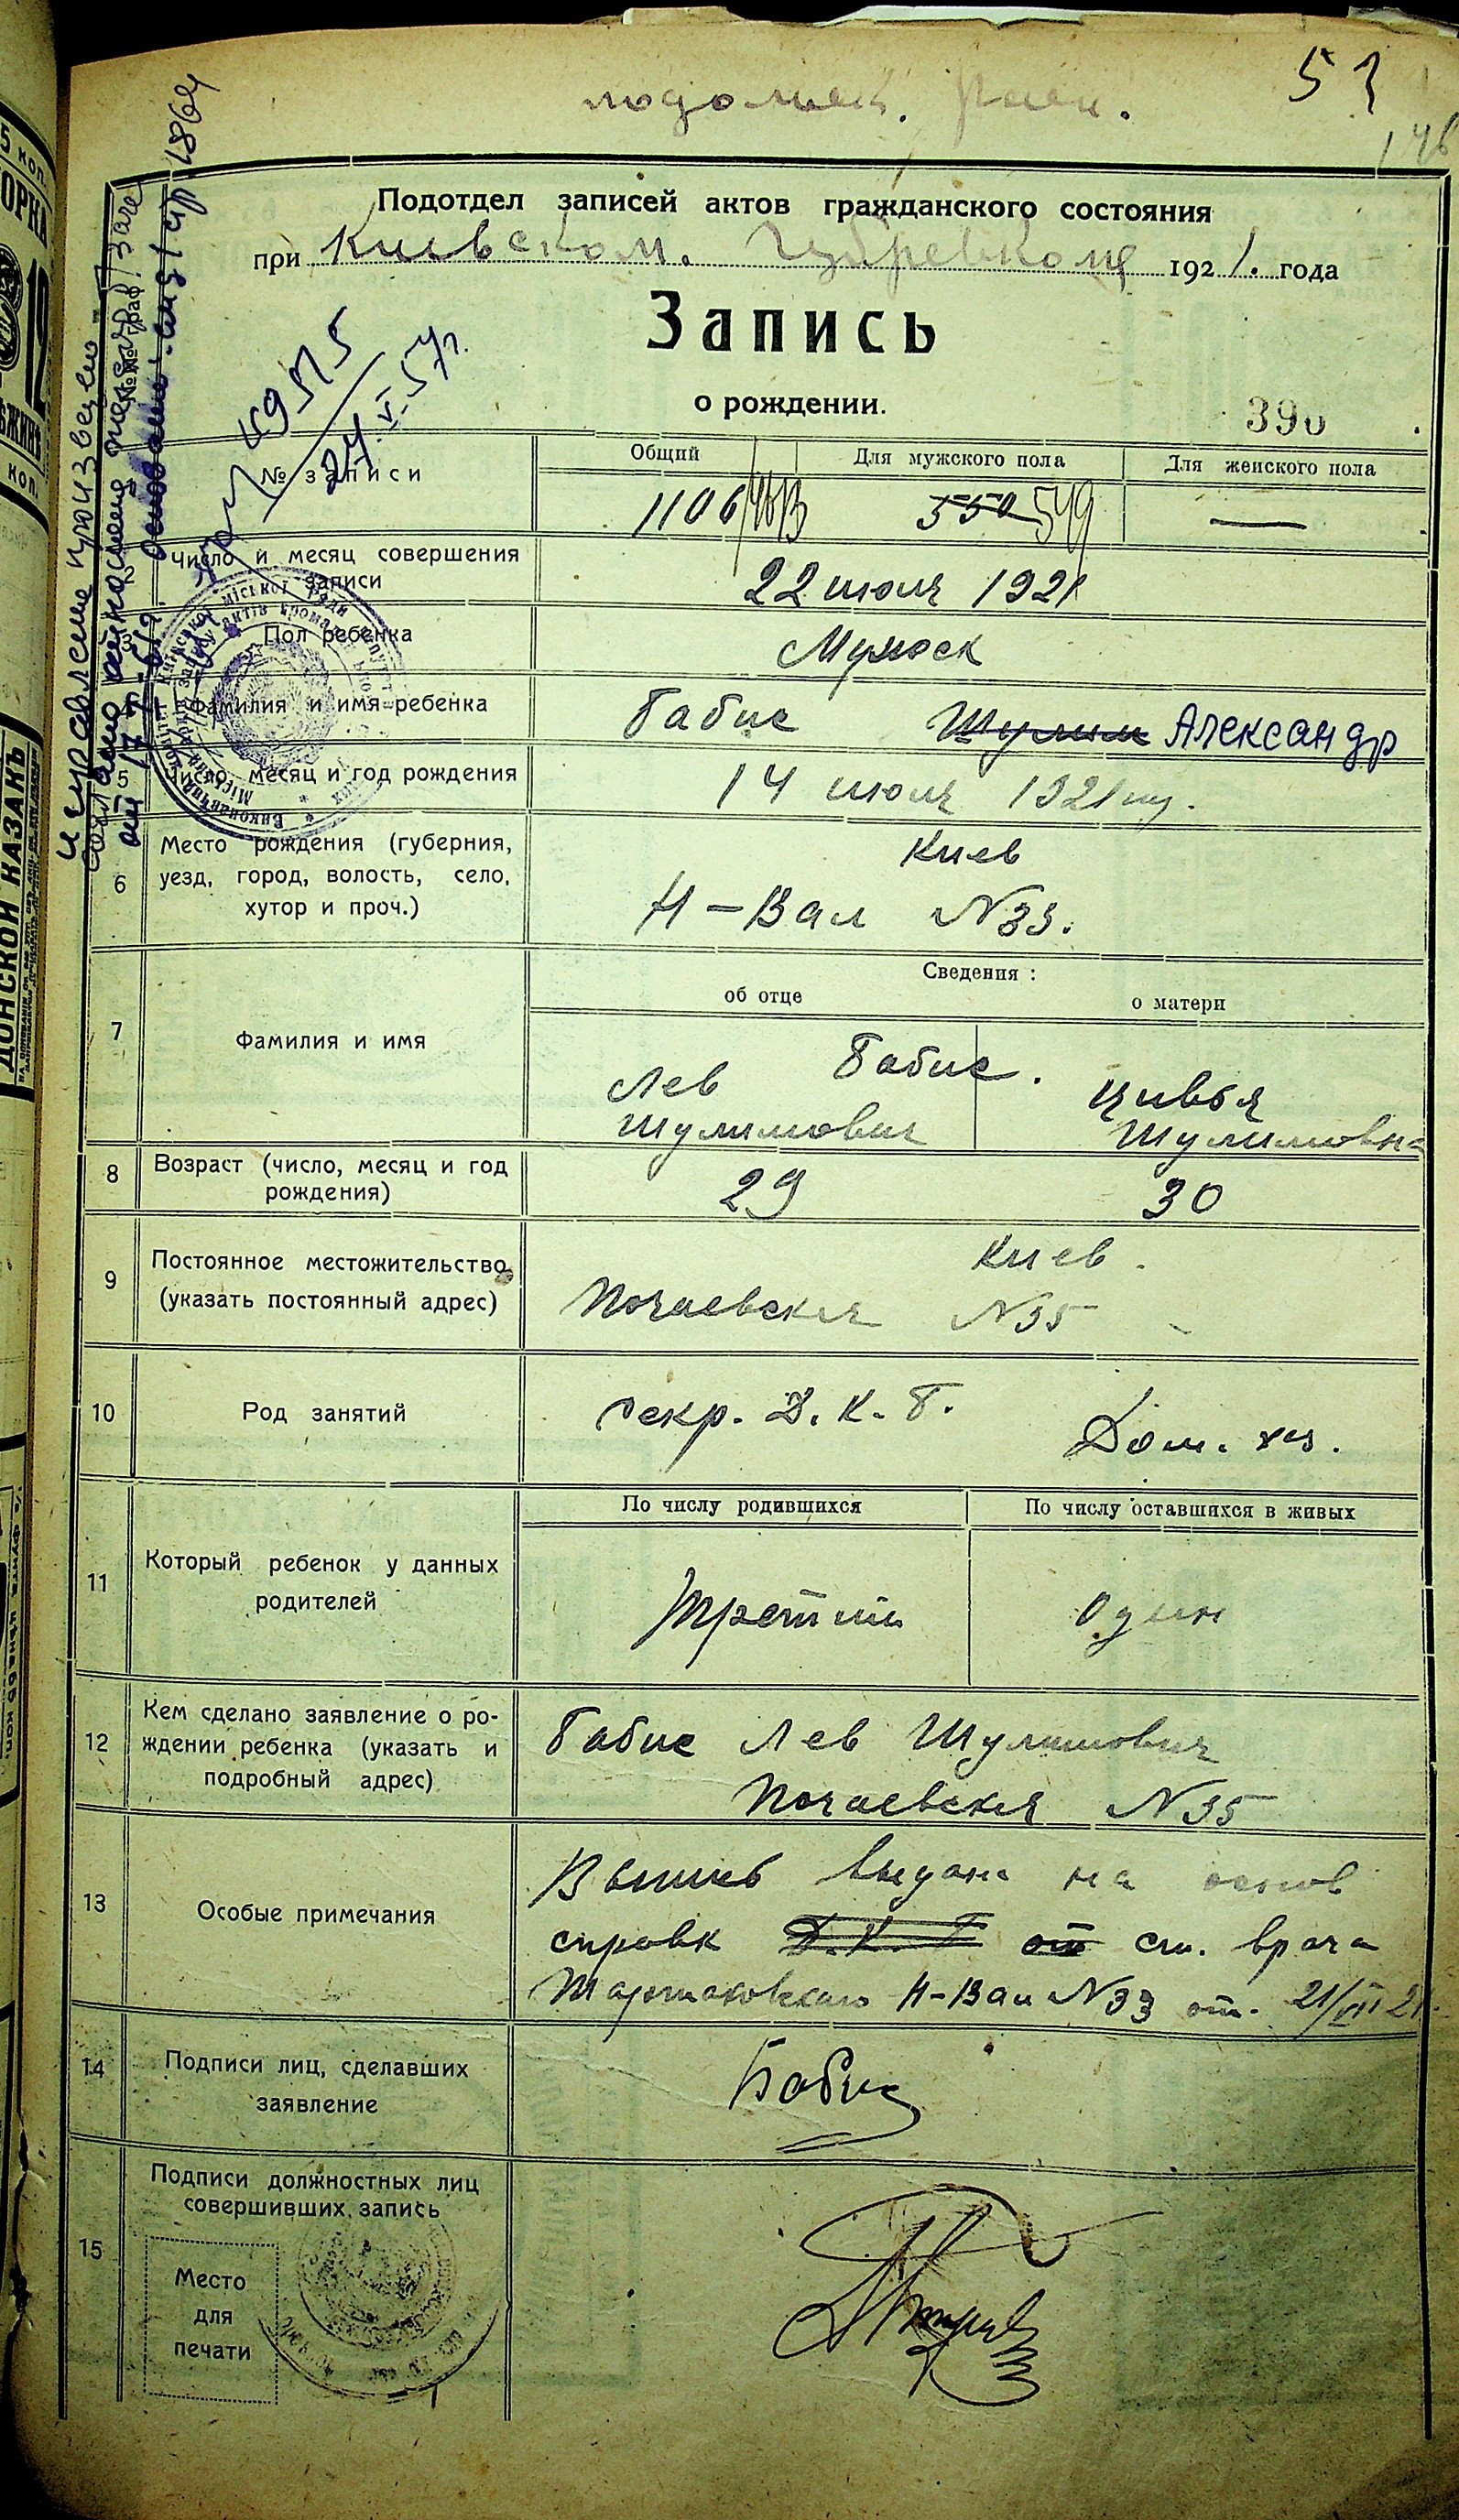 53
146
Подольск. Раен.
Подотдел записей актов гражданского состояния
при Киевском. Губревкоме 1921. года
Запись
о рождении.
390
49515
24.VI.57г.
№ записи
Общий
Для мужского пола
Для женского пола
1106
550 549
—
Число и месяц совершения записи
22 июля 1921
Пол ребенка
Мужск
Фамилия и имя ребенка
Бабис Шулим Александр
5 Число, месяц и год рождения
14 июля 1921
6 Место рождения (губерния, уезд, город, волость, село, хутор и проч.)
Киев
Н-Вал N33.
Сведения:
об отце
о матери
7 Фамилия и имя
Бабис.
Лев Шулимович
Цивья Шулимовна
8 Возраст (число, месяц и год рождения)
29
30
9 Постоянное местожительство (указать постоянный адрес)
Киев.
Почаевская N35
10 Род занятий
Секр. Д. К. Б.
Дом. хоз.
11 Который ребенок у данных родителей
По числу родившихся
По числу оставшихся в живых
третий
один
12 Кем сделано заявление о рождении ребенка (указать и подробный адрес)
Бабис Лев Шулимович
Почаевская N35
13 Особые примечания
выдана на основ
справк Д.К.Б от см. врача
Н-Вал N33 от. 21/VII 21.
14 Подписи лиц, сделавших заявление
Бабис
15 Подписи должностных лиц совершивших запись
Место
для
печати
исправление произведено
ДОНСКОЙ КАЗАКЪ